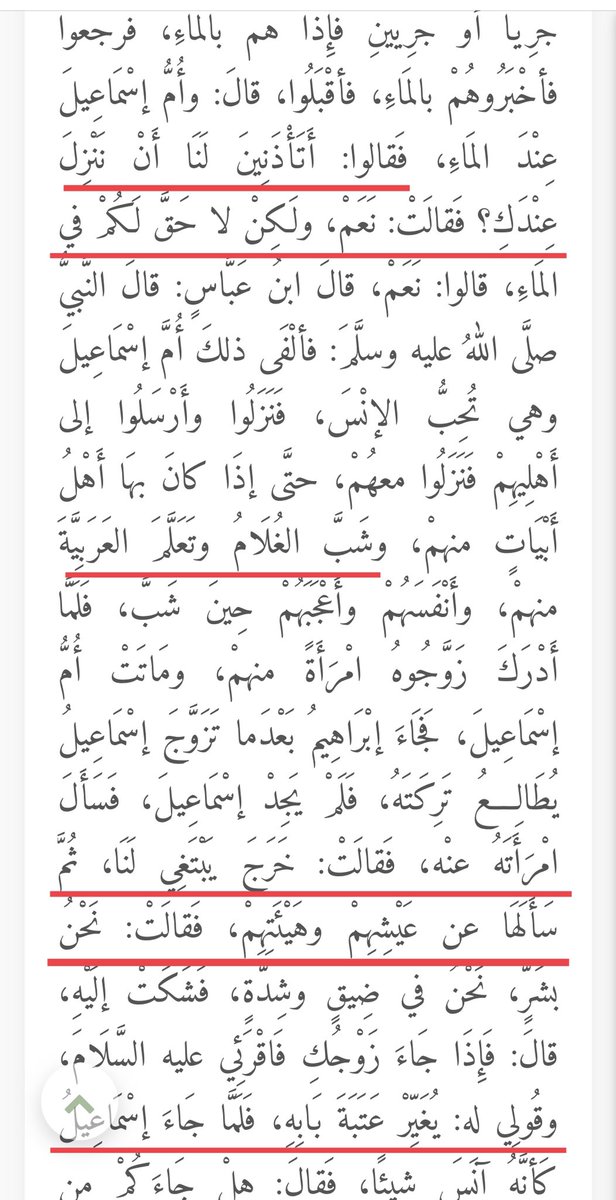 جرياً أو جريينِ فإِذا هم بالمَاءِ، فرجعوا
فأخْبَرُوهُمْ بالمَاءِ، فأقْبَلُوا، قالَ: وأُمُّ إسْمَاعِيلَ
عِنْدَ المَاءِ، فَقالوا: أَتَأْذَنِينَ لَنَا أَنْ نَنْزِلَ
عِنْدَكِ؟ فَقالَتْ: نَعَمْ، ولَكِنْ لا حَقَّ لَكُمْ في
المَاءِ، قالوا: نَعَمْ، قالَ ابنُ عَبَّاسٍ: قالَ النَّبيُّ
صلَّى اللهُ عليه وسلَّمَ: فألْفَى ذلكَ أُمَّ إسْمَاعِيلَ
وهي تُحِبُّ الإنْسَ، فَنَزَلُوا وأَرْسَلُوا إلى
أَهْلِيهِمْ فَنَزَلُوا معهُمْ، حتَّى إذَا كانَ بهَا أَهْلُ
أَبْيَاتٍ منهمْ، وشَبَّ الغُلَامُ وتَعَلَّمَ العَرَبِيَّةَ
منهمْ، وأَنْفَسَهُمْ وأَعْجَبَهُمْ حِينَ شَبَّ، فَلَمَّا
أَدْرَكَ زَوَّجُوهُ امْرَأَةً منهمْ، ومَاتَتْ أُمُّ
إسْمَاعِيلَ، فَجَاءَ إبْرَاهِيمُ بَعْدَما تَزَوَّجَ إسْمَاعِيلُ
يُطَالِـــعُ تَرِكَتَهُ، فَلَمْ يَجِدْ إسْمَاعِيلَ، فَسَأَلَ
امْرَأَتَهُ عنْه، فَقالَتْ: خَرَجَ يَبْتَغِي لَنَا، ثُمَّ
سَأَلَهَا عن عَيْشِهِمْ وهَيْئَتِهِمْ، فَقالَتْ: نَحْنُ
بشَرٍّ، نَحْنُ في ضِيقٍ وشِدَّةٍ، فَشَكَتْ إلَيْهِ،
قالَ: فَإِذَا جَاءَ زَوْجُكِ فَاقْرَئِي عليه السَّلَامَ،
وقُولِي له: يُغَيِّرْ عَتَبَةَ بَابِهِ، فَلَمَّا جَاءَ إسْمَاعِيلُ
كَأنَّهُ آنَسَ شيئًا، فَقالَ: هلْ جَاءَكُمْ مِن